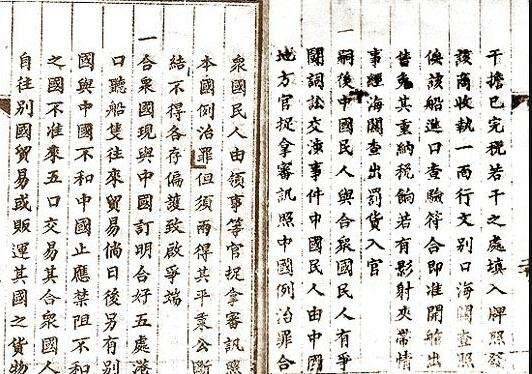 干擔已完稅若干之處填入牌照發
該商收執一面行文別口海關查照
俟該船進口查驗符合即准開艙出
售免其重納稅餉若有影射夾帶情
事經海關查出罰貨入官
一嗣後中國民人與合眾國民人有爭
鬭詞訟交涉事件中國民人由中國
地方官捉拿審訊照中國例治罪合
眾國民人由領事等官捉拿審訊照
本國例治罪但須兩得其平秉公斷
結不得各存偏護致啟爭端
一合眾國現與中國訂明合好五處港
口聽船隻往來貿易倘日後另有別
國與中國不和中國止應禁阻不和
之國不准來五口交易其合眾國人
自往別國貿易或販運其國之貨物